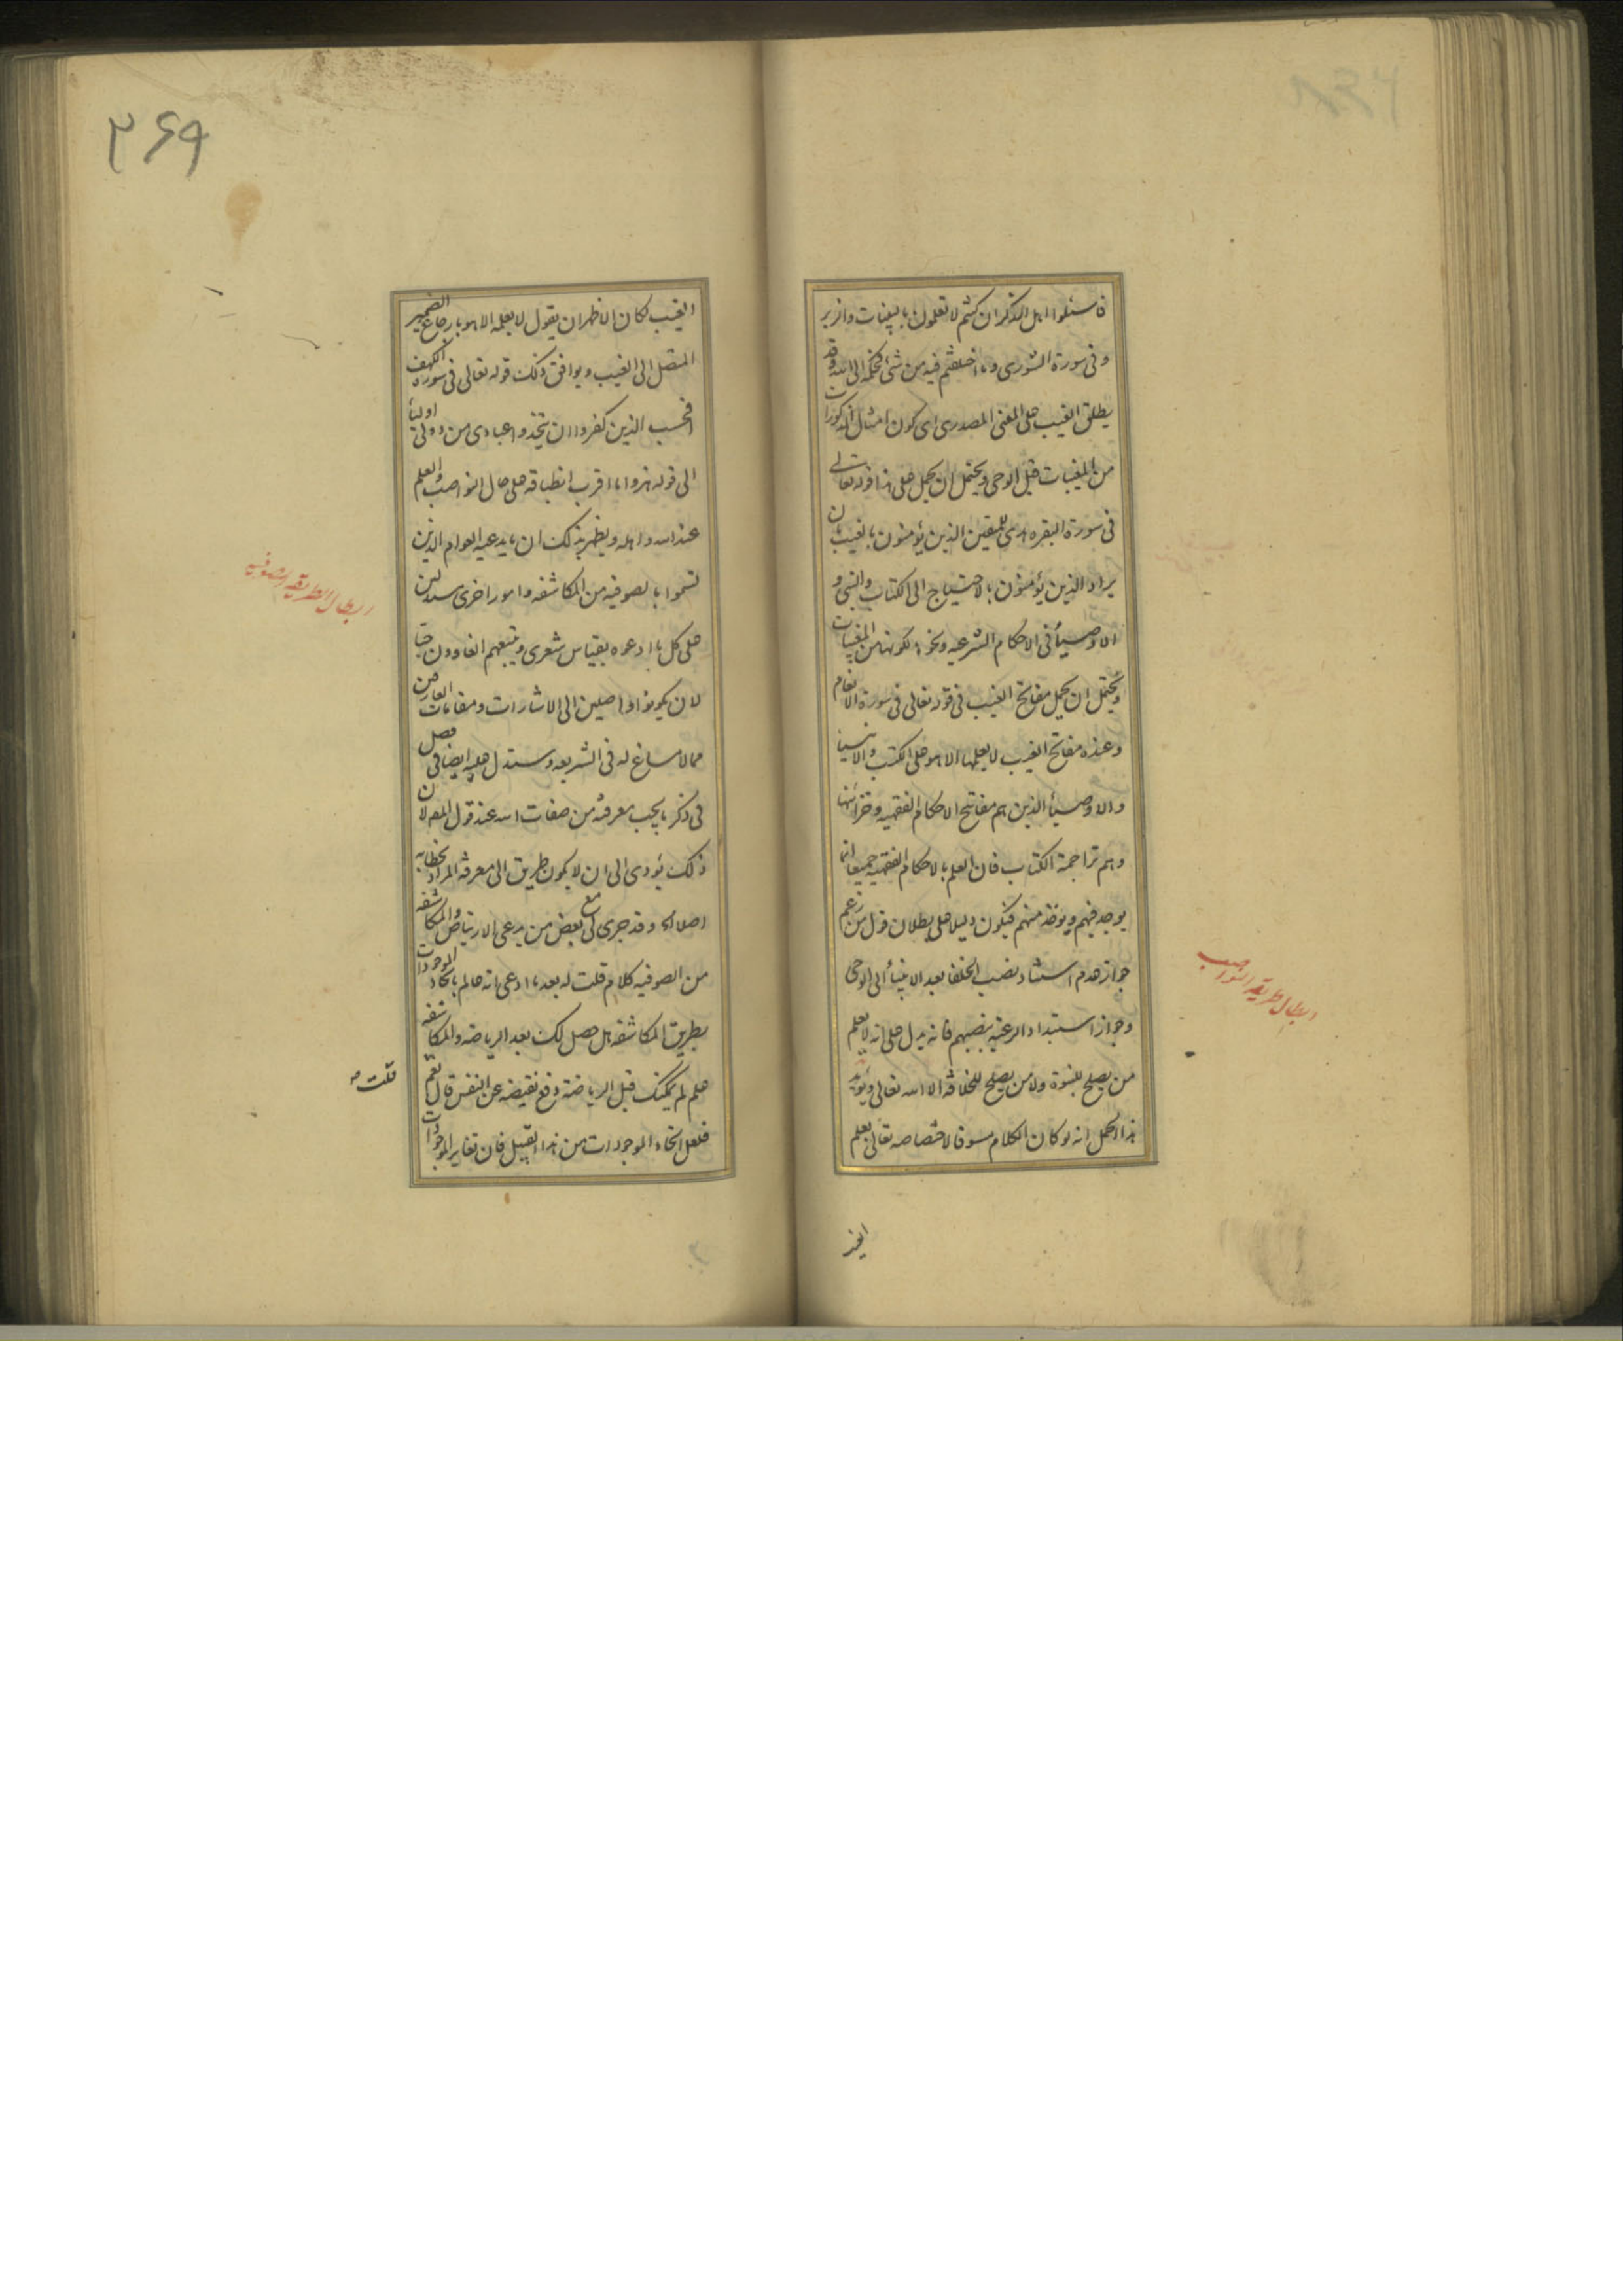 فاسئلوا اهل الذكر ان كنتم لا تعلمون بالبينات والزبر
وفى سورة الشورى وما اختلفتم فيه من شئ فحكمه الى الله وقد
يطلق الغيب على المعنى المصدرى اى كون امثال المذكورات
من المغيبات قبل الوحى ويحتمل ان يحمل على هذا قوله تعالى
فى سورة البقره هدى للمتقين الذين يؤمنون بالغيب بان
يراد الذين يؤمنون بالاحتياج الى الكتاب والنبى و
الاوصيأ فى الاحكام الشرعيه ونحوها لكونها من المغيبات
ويحتمل ان يحمل مفاتح الغيب فى قوله تعالى فى سورة الانعام
وعنده مفاتح الغيب لا يعلمها الا هو على الكتب والانبيا
والاوصيأ الذين هم مفاتيح الاحكام الفقهيه وخزائنها
وهم تراجمة الكتاب فان العلم بالاحكام الفقهيه جميعا انما
يوجد فيهم ويوخذ منهم فيكون دليلا على بطلان قول من زعم
جواز عدم استناد نصب الخلفا بعد الانبيأ الى الوحى
وجواز استبداد الرعيه بنصبهم فانه يدل على انه لا يعلم
من يصلح للنبوة ولا من يصلح للخلافة الا الله تعالى ويؤيد
هذا الحمل انه لو كان الكلام مسوقا لاختصاصه تعالى بعلم
ابطال طريقه النواصب
٣۶٩
الغيب لكان الاظهر ان يقول لا يعلمه الا هو بارجاع الضمير
المتصل الى الغيب ويوافق ذلك قوله تعالى فى سورة الكهف
افحسب الذين كفروا ان يتخذوا عبادى من دونى اوليأ
الى قوله هزوا ما اقرب انطباقه على حال النواصب والعلم
عند الله واهله ويظهر بذلك ان ما يدعيه العوام الذين
تسموا بالصوفيه من المكاشفه وامور اخرى مستدلين
على كل ما ادعوه بقياس شعرى ويتبعهم الغاوون حبا
لان يكونوا واصلين الى الاشارات ومقامات العارفين
مما لا مساغ له فى الشريعه وسنستدل عليه ايضا فى فصل
فى ذكر ما يجب معرفته من صفات الله عند قول المص لان
ذلك يؤدى الى ان لا يكون طريق الى معرفة المراد بخطابه
اصلا الخ وقد جرى لى مع بعض من يدعى الارتياض والمكاشفه
من الصوفيه كلام قلت له بعد ما ادعى انه عالم باتحاد الموجودات
بطريق المكاشفه هل حصل لك بعد الرياضه والمكاشفه
علم لم يمكنك قبل الرياضة دفع نقيضه عن النفس قال نعم
فلعل اتحاد الموجودات من هذا القبيل فان تغاير الموجودات
ابطال الطريقه الصوفيه
قلت